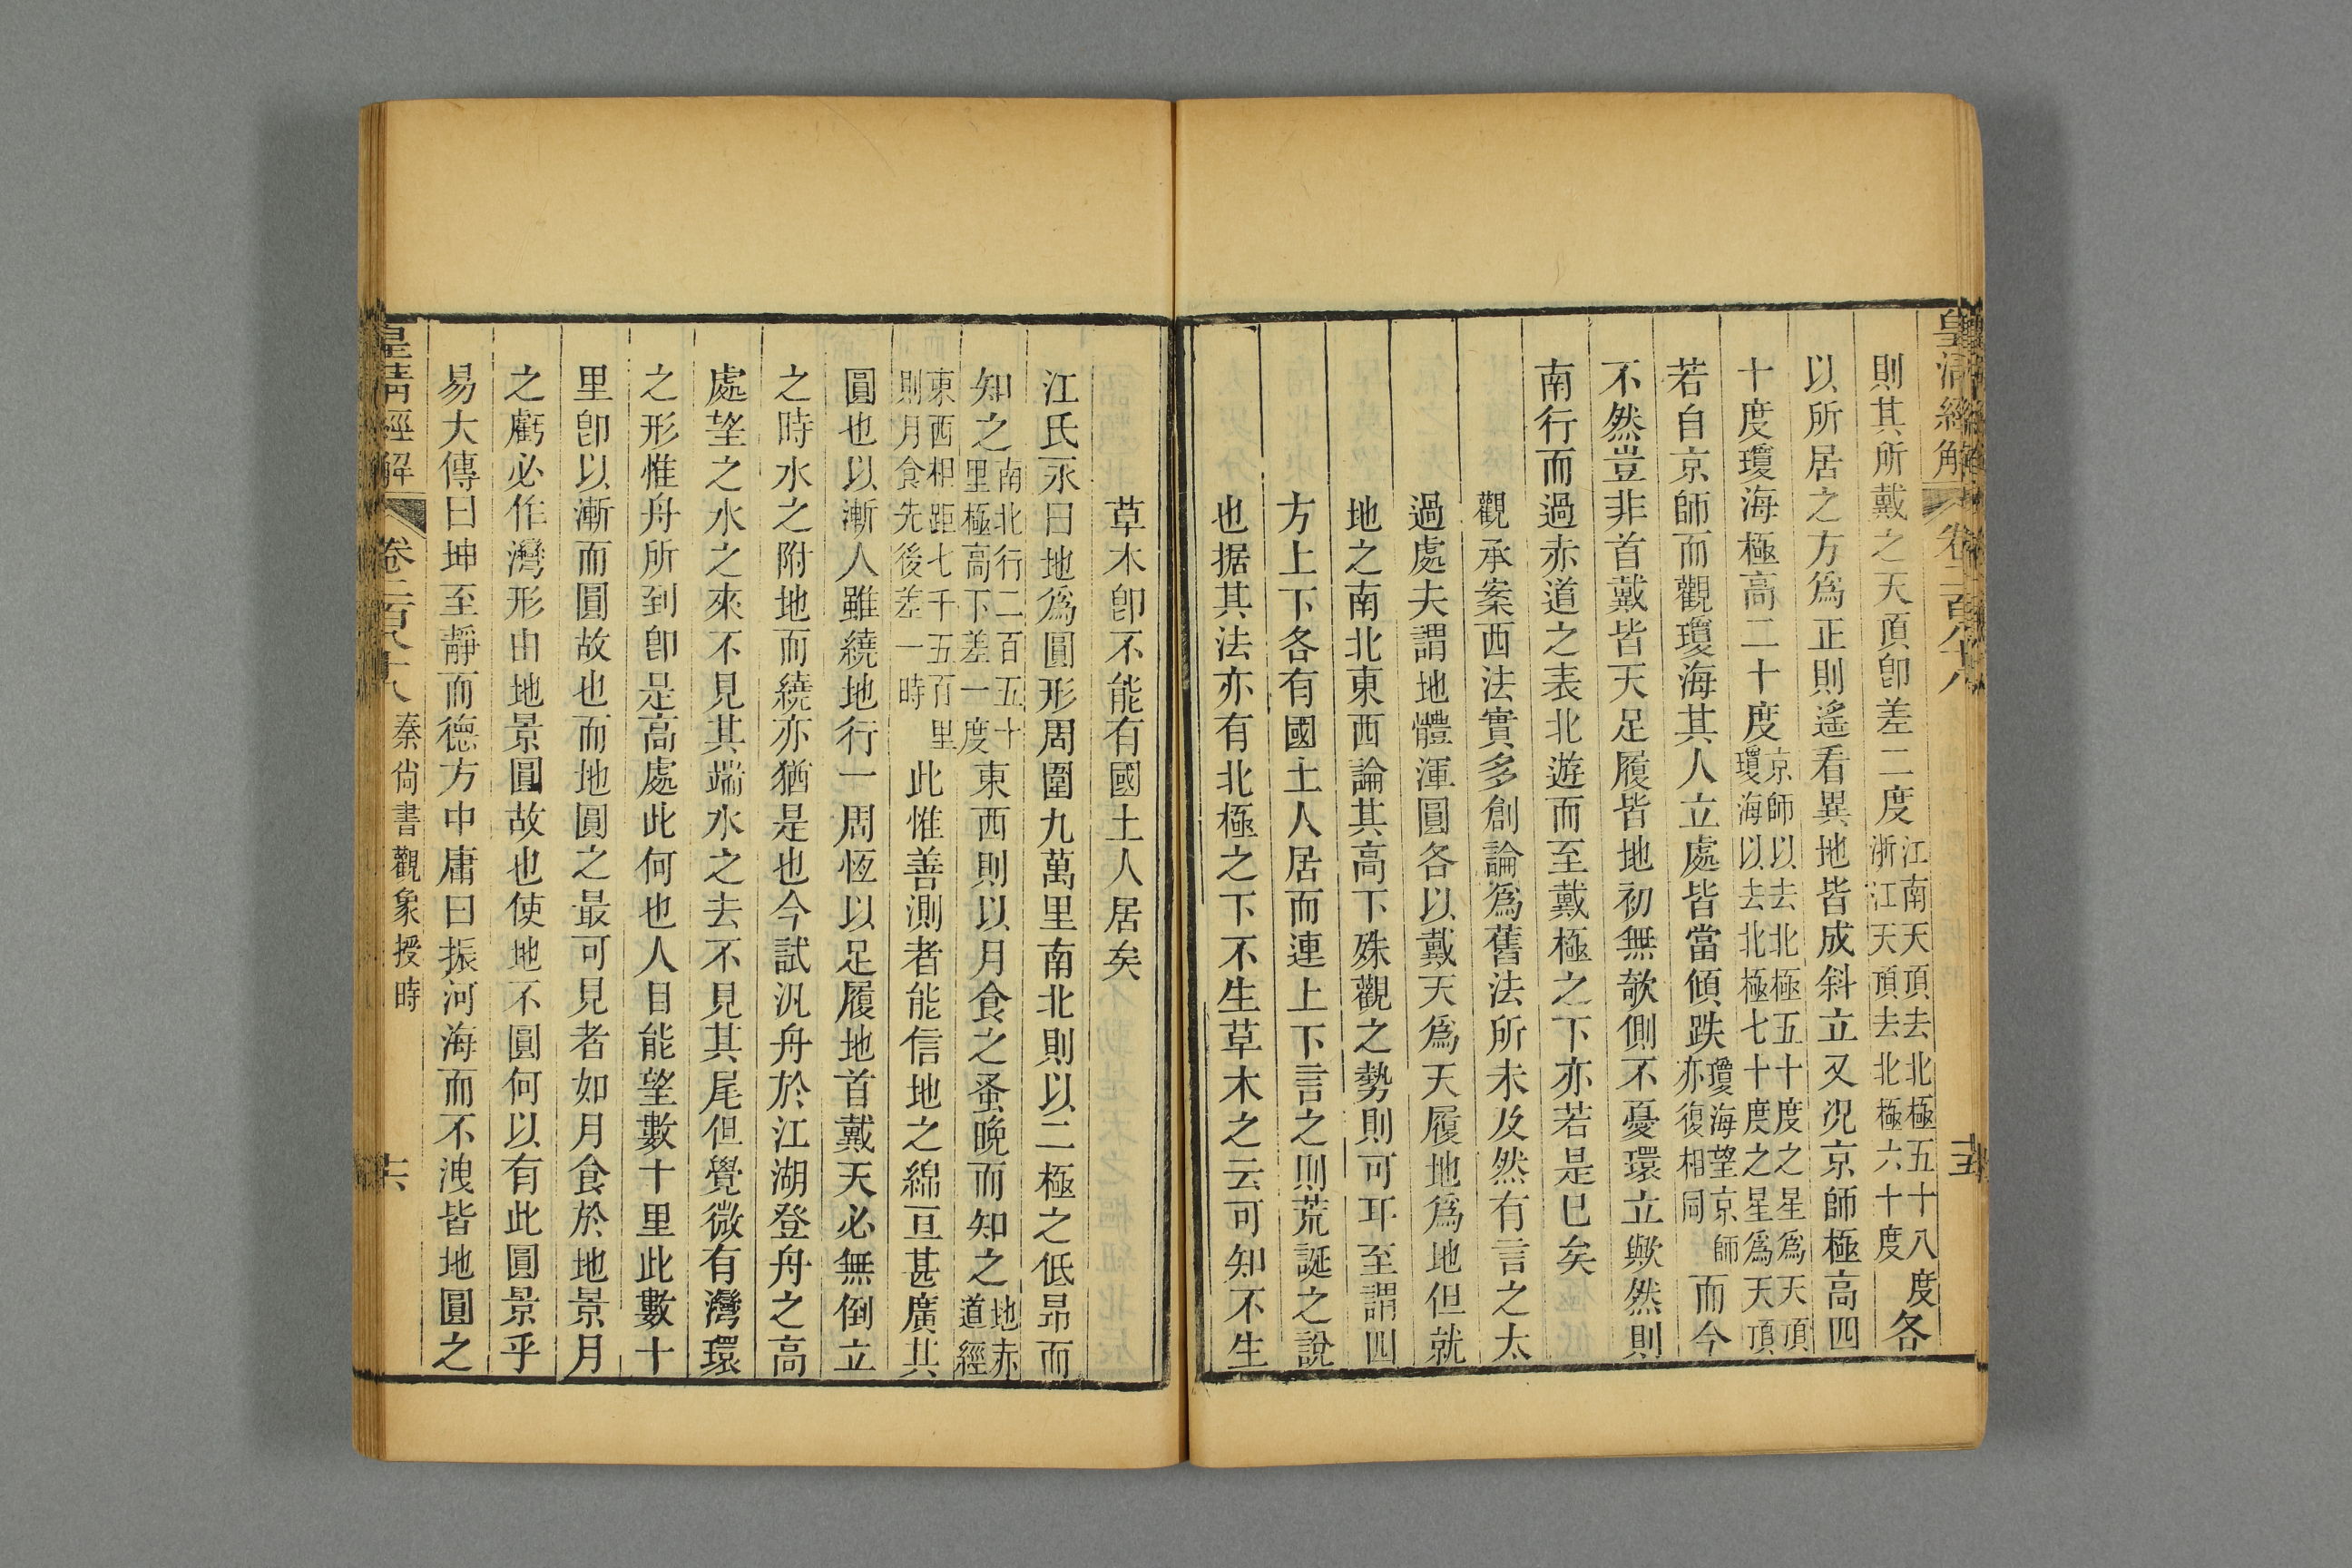 皇清經解
卷二百八十八
十五
則其所戴之天頂卽差二度江南天頂去北極五十八度浙江天頂去北極六十度各
以所居之方爲正則遙看異地皆成斜立又况京師極高四
十度瓊海極高二十度京師以去北極五十度之星爲天頂瓊海以去北極七十度之星爲天頂
若自京師而觀瓊海其人立處皆當傾跌瓊海望京師亦復相同而今
不然豈非首戴皆天足履皆地初無欹側不憂環立歟然則
南行而過赤道之表北遊而至戴極之下亦若是已矣
觀承案西法實多創論爲舊法所未及然有言之太
過處夫謂地體渾圓各以戴天爲天履地爲地但就
地之南北東西論其高下殊觀之勢則可耳至謂四
方上下各有國土人居而連上下言之則荒誕之說
也据其法亦有北極之下不生草木之云可知不生
草木卽不能有國土人居矣
江氏永曰地爲圓形周圍九萬里南北則以二極之低昂而
知之南北行二百五十里極高下差一度東西則以月食之蚤晚而知之地赤道經
東西相距七千五百里則月食先後差一時此惟善測者能信地之綿亘甚廣其
圓也以漸人雖繞地行一周恆以足履地首戴天必無倒立
之時水之附地而繞亦猶是也今試汎舟於江湖登舟之高
處望之水之來不見其端水之去不見其尾但覺微有灣環
之形惟舟所到卽是高處此何也人目能望數十里此數十
里卽以漸而圓故也而地圓之最可見者如月食於地景月
之虧必作灣形由地景圓故也使地不圓何以有此圓景乎
易大傳曰坤至靜而德方中庸曰振河海而不洩皆地圓之
皇清經解
卷二百八十八
秦尙書觀象授時
十六